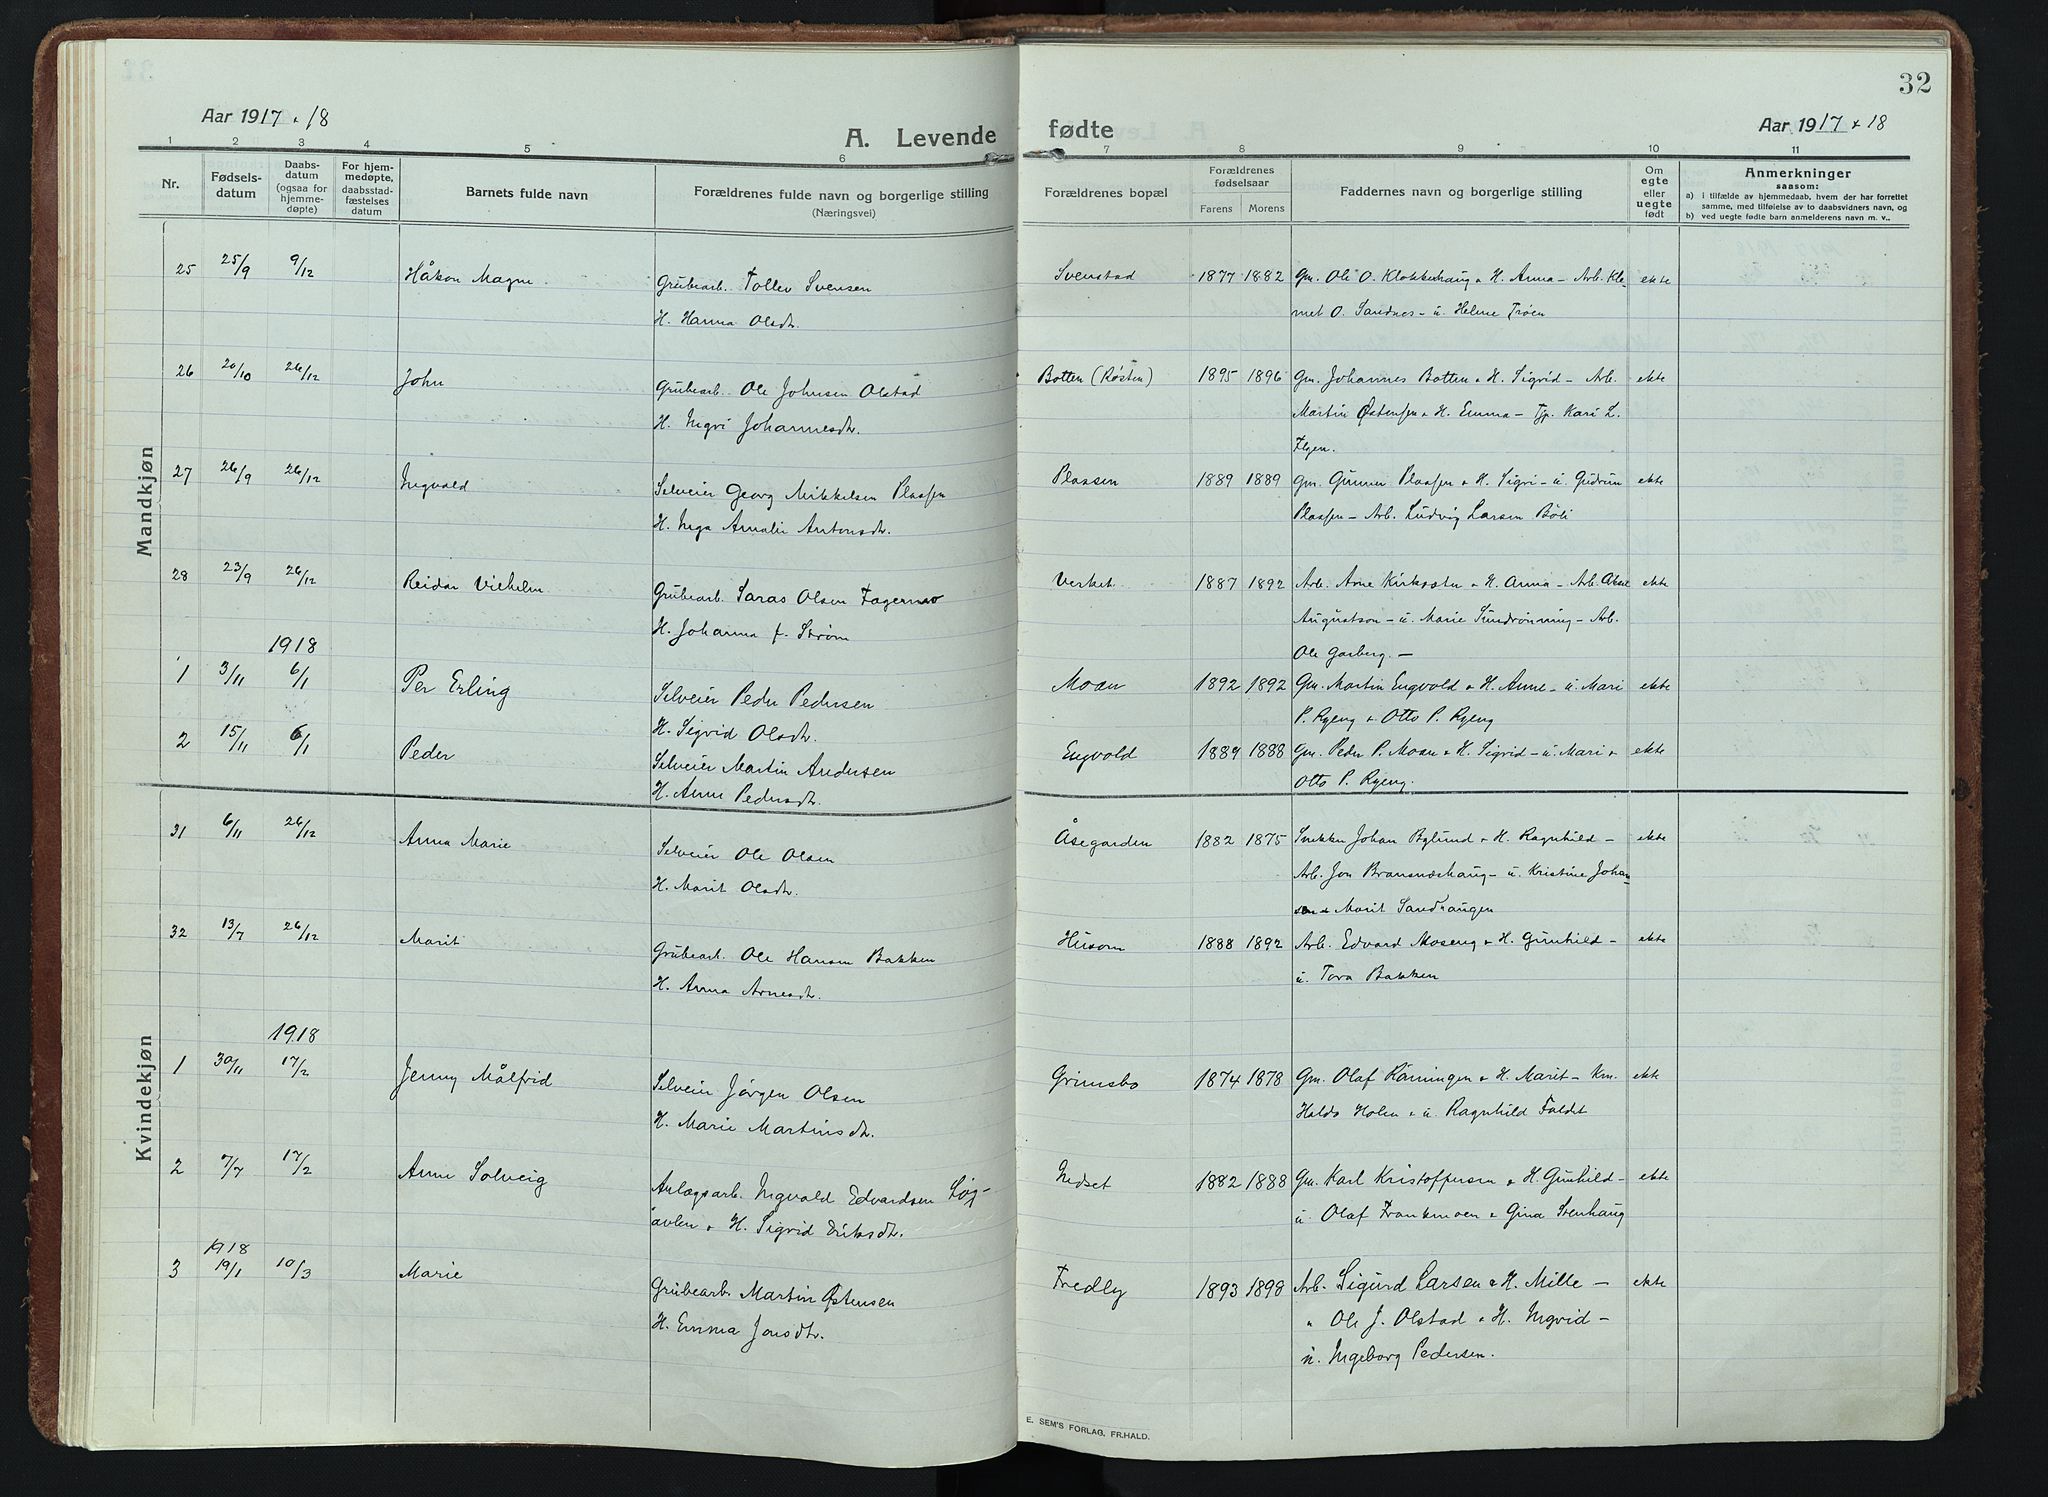 32
Aar 1917 + 18
A. Levende
fødte
Aar 1917 + 18
1 2 3 4 5 6 7 8 9 10 11
Nr.
Fødsels-
datum
Daabs-
datum
(ogsaa for
hjemme-
døpte)
For hjem-
medøpte,
daabsstad-
fæstelses
datum
Barnets fulde navn
Forældrenes fulde navn og borgerlige stilling
(Næringsvei)
Forældrenes bopæl
Forældrenes
fødselsaar
Farens Morens
Faddernes navn og borgerlige stilling
Om
egte
eller
uegte
født
Anmerkninger
saasom:
a) i tilfælde av hjemmedaab, hvem der har forrettet
samme, med tilføielse av to daabsvidners navn, og
b) ved uegte fødte barn anmelderens navn m. v..
Mandkjøn
25 25/9 9/12 Håkon Magne Grubearb. Tollev Svensen Svenstad 1877 1882 Gm. Ole O. Klokkerhaug & H. Anna – Arb. Kle- ekte
H. Hanna Olsdtr. met O. Sandnes – u. Helene Trøen
26 20/10 26/12 John Grubearb. Ole Johnsen Olstad Botten (Røsten) 1895 1896 Gm. Johannes Botten & H. Sigrid – Arb. ekte
H. Ingri Johannesdtr. Martin Østensen & H. Emma – Tjp. Kari L.
Flyen.
27 26/9 26/12 Ingvald Selveier Georg Mikkelsen Plassen Plassen 1889 1889 Gm. Gunnar Plassen & H. Sigri – u. Gudrun ekte
H. Inga Amalie Antonsdtr. Plassen – Arb. Ludvig Larsen Bøli
28 23/9 26/12 Reidar Vilhelm Grubearb. Saras Olsen Fagernes Verket 1887 1892 Arb. Arne Kirksæter & H. Anna – Arb. Aksel ekte
H. Johanna f. Strøm Augustson – u. Marie Sundrønning – Arb.
1918 Ole Garberg. –
1 3/11 6/1 Per Erling Selveier Peder Pedersen Moan 1892 1892 Gm. Martin Engvold & H. Anne – u. Mari ekte
H. Sigrid Olsdtr. P. Ryeng & Otto P. Ryeng
2 15/11 6/1 Peder Selveier Martin Andersen Engvold 1889 1888 Gm. Peder P. Moan & H. Sigrid – u. Mari & ekte
H. Anne Pedersdtr. Otto P. Ryeng.
Kvindekjøn
31 6/11 26/12 Anna Marie Selveier Ole Olsen Åsegarden 1882 1875 Snekker Johan Bylund & H. Ragnhild – ekte
H. Marit Olsdtr. Arb. Jon Bransneshaug – u. Kristine Johan-
sen & Marit Sandhaugen
32 13/7 26/12 Marit Grubearb. Ole Hansen Bakken Husom 1888 1892 Arb. Edvard Moseng & H. Gunhild – ekte
H. Anna Arnesdtr. u. Tora Bakken
1918
1 30/11 17/2 Jenny Målfrid Selveier Jørgen Olsen Grimsbo 1874 1878 Gm. Olaf Rønningen & H. Marit – Km. ekte
H. Marie Martinsdtr. Haldo Holen & u. Ragnhild Foldet
2 7/7 17/2 Anne Solveig Anlægsarb. Ingvald Edvardsen Løg- Nedset 1882 1888 Gm. Karl Kristoffersen & H. Gunhild – ekte
avlen & H. Sigrid Eriksdtr. u. Olaf Frankmoen & Gina Stenhaug
1918
3 19/1 10/3 Marie Grubearb. Martin Østensen Fredly 1893 1898 Arb. Sigurd Larsen & H. Mille – ekte
H. Emma Jonsdtr. " Ole J. Olstad & H. Ingrid –
u. Ingeborg Pedersen.
E. SEM'S FORLAG, FR.HALD.